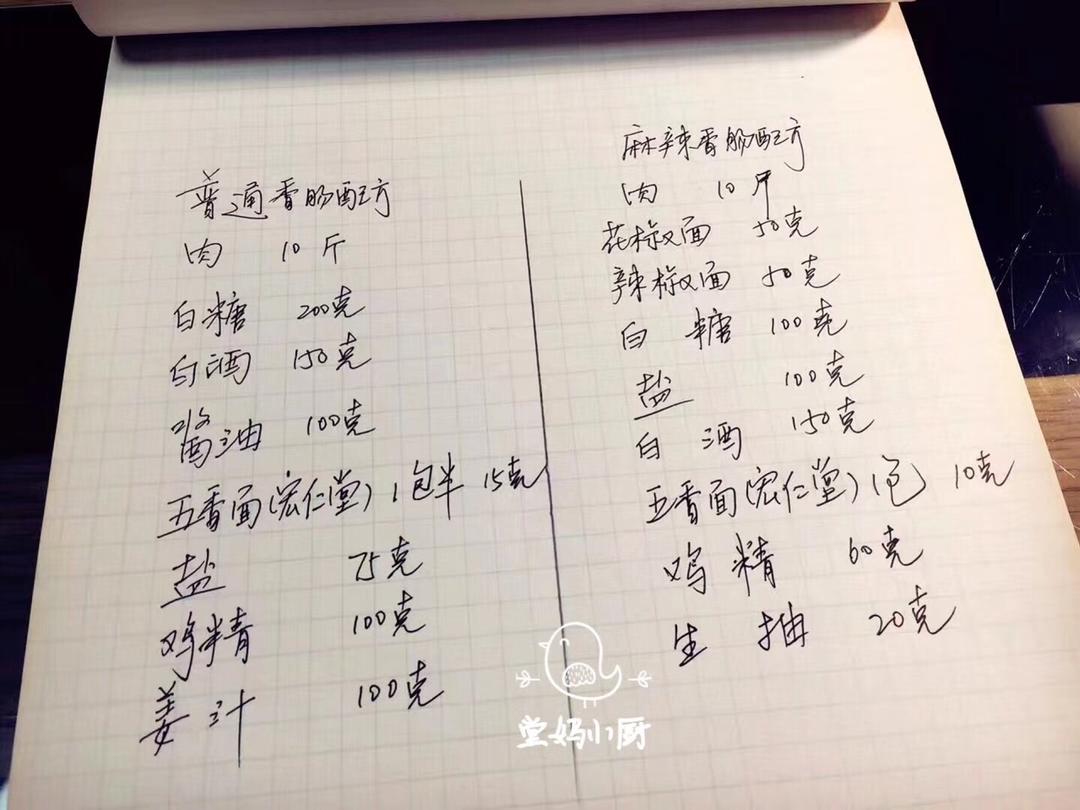 普通香肠配方
肉 10斤
白糖 200克
白酒 150克
酱油 100克
五香面(宏仁堂) 1包半 15克
盐 75克
鸡精 100克
姜汁 100克
麻辣香肠配方
肉 10斤
花椒面 50克
辣椒面 50克
白糖 100克
盐 100克
白酒 150克
五香面(宏仁堂) 1包 10克
鸡精 60克
生抽 20克
堂妈小厨